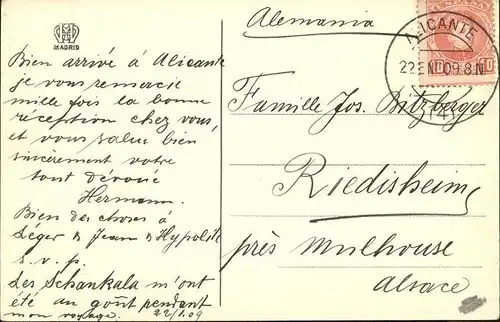 MADRID
Bien arrivé à Alicante
je vous remercie
mille fois la bonne
réception chez vous,
et vous salue bien
sincèrement votre
tout dévoué
Hermann.
Bien des choses à
Léger & Jean & Hypolite
s.v.p.
Les Schankala m'ont
été au goût pendant
mon voyage. 22/1.09
Alemania
ALICANTE
22 EN 09 8 N
(4)
Famille Jos. Bitzberger
Riedisheim
près Mulhouse
Alsace